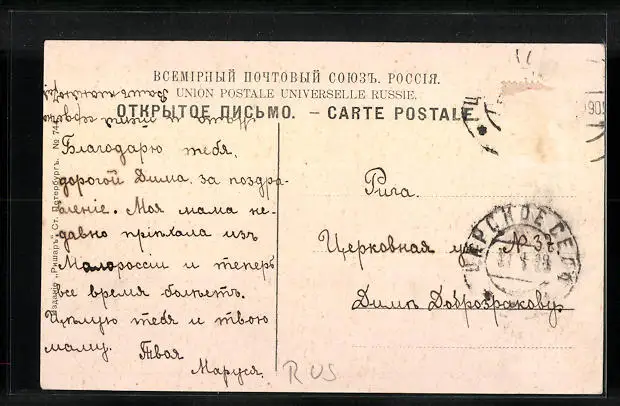 ВСЕМІРНЫЙ ПОЧТОВЫЙ СОЮЗЪ. РОССІЯ.
UNION POSTALE UNIVERSELLE RUSSIE.
ОТКРЫТОЕ ПИСЬМО. – CARTE POSTALE.
Благодарю тебя,
дорогой Дима, за поздра-
вленіе. Моя мама не-
давно пріѣхала изъ
Малороссіи и теперь
все время болѣетъ.
Цѣлую тебя и твою
маму. Твоя
Маруся.
Рига.
Церковная ул. № 37.
Димѣ Доброзракову
ЦАРСКОЕ СЕЛО
Изданіе „Ришаръ" Ст. Петербургъ. № 74
R US